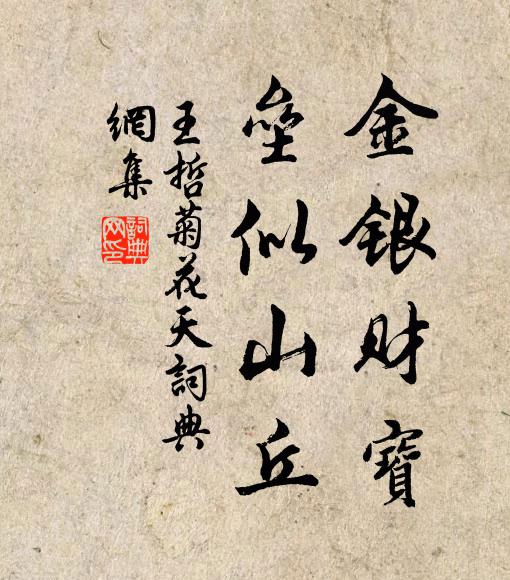 金銀财寶
垒似山丘
王哲菊花天詞典
網集
詞典
网印